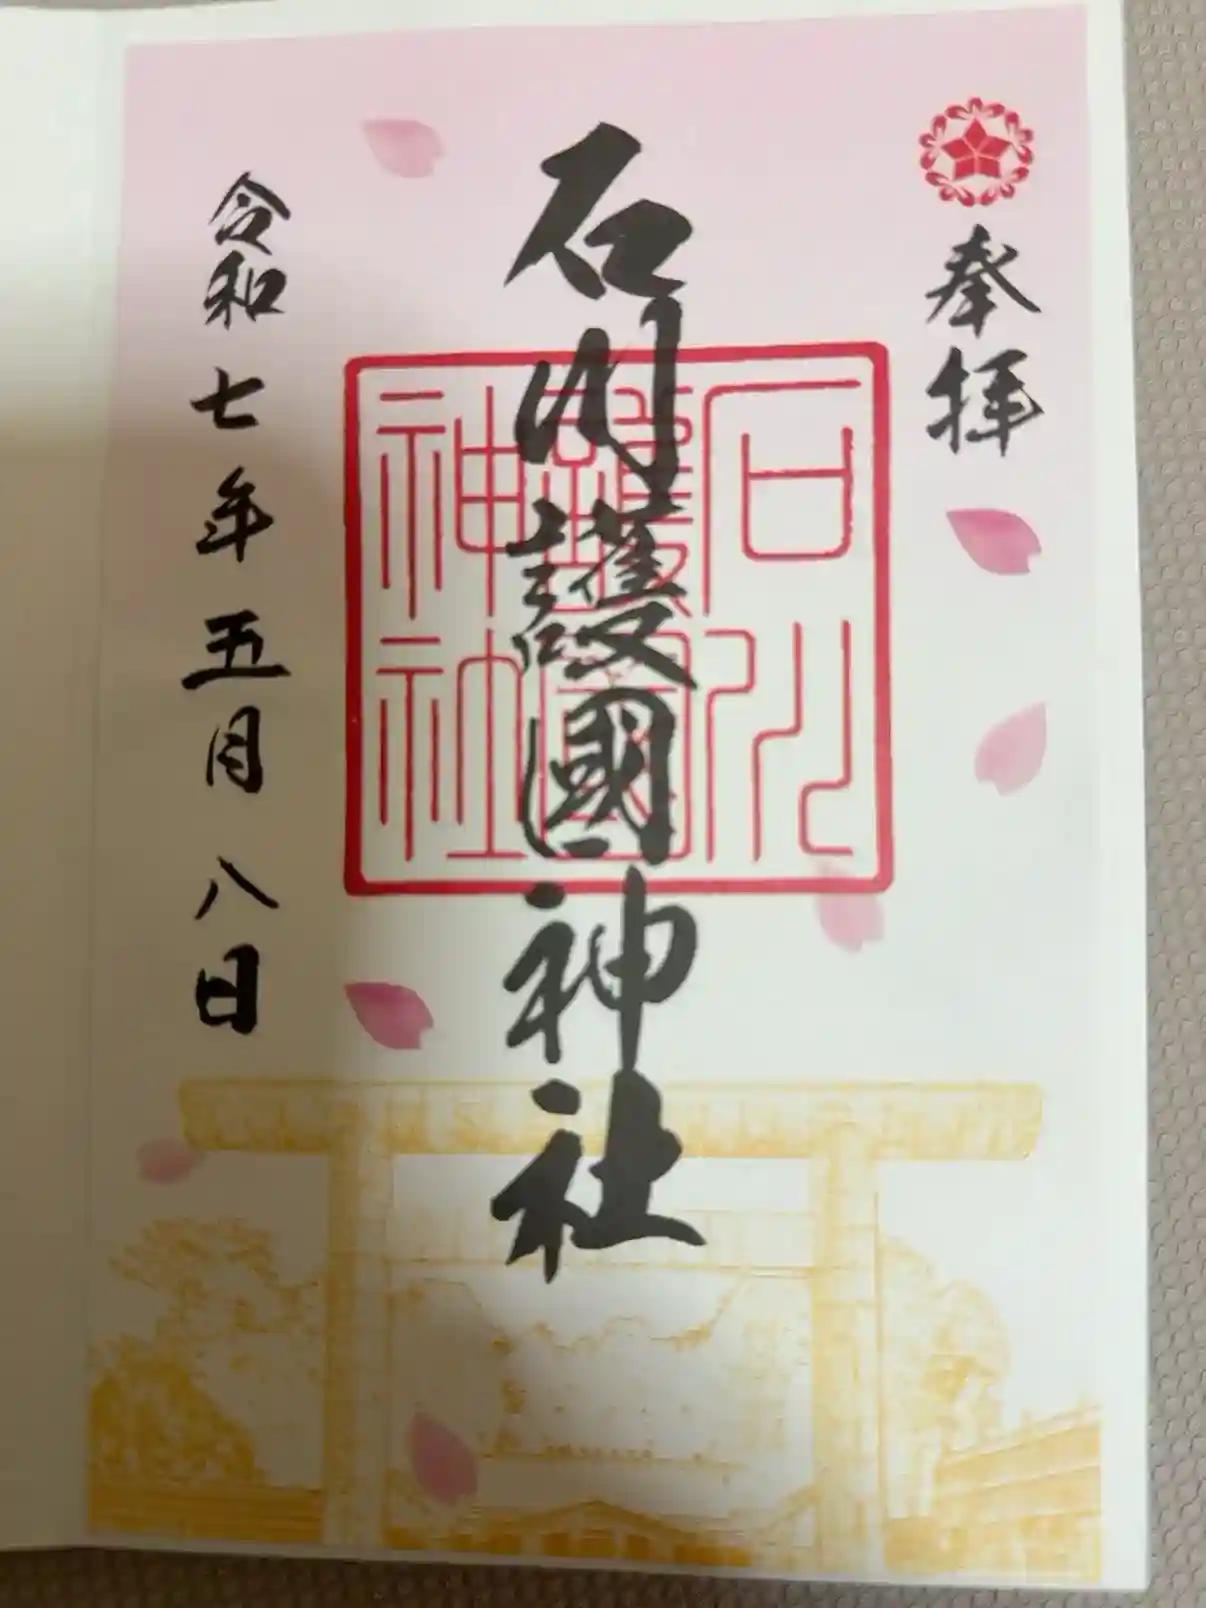 奉拝
石川護國神社
石川
護國
神社
令和七年五月八日